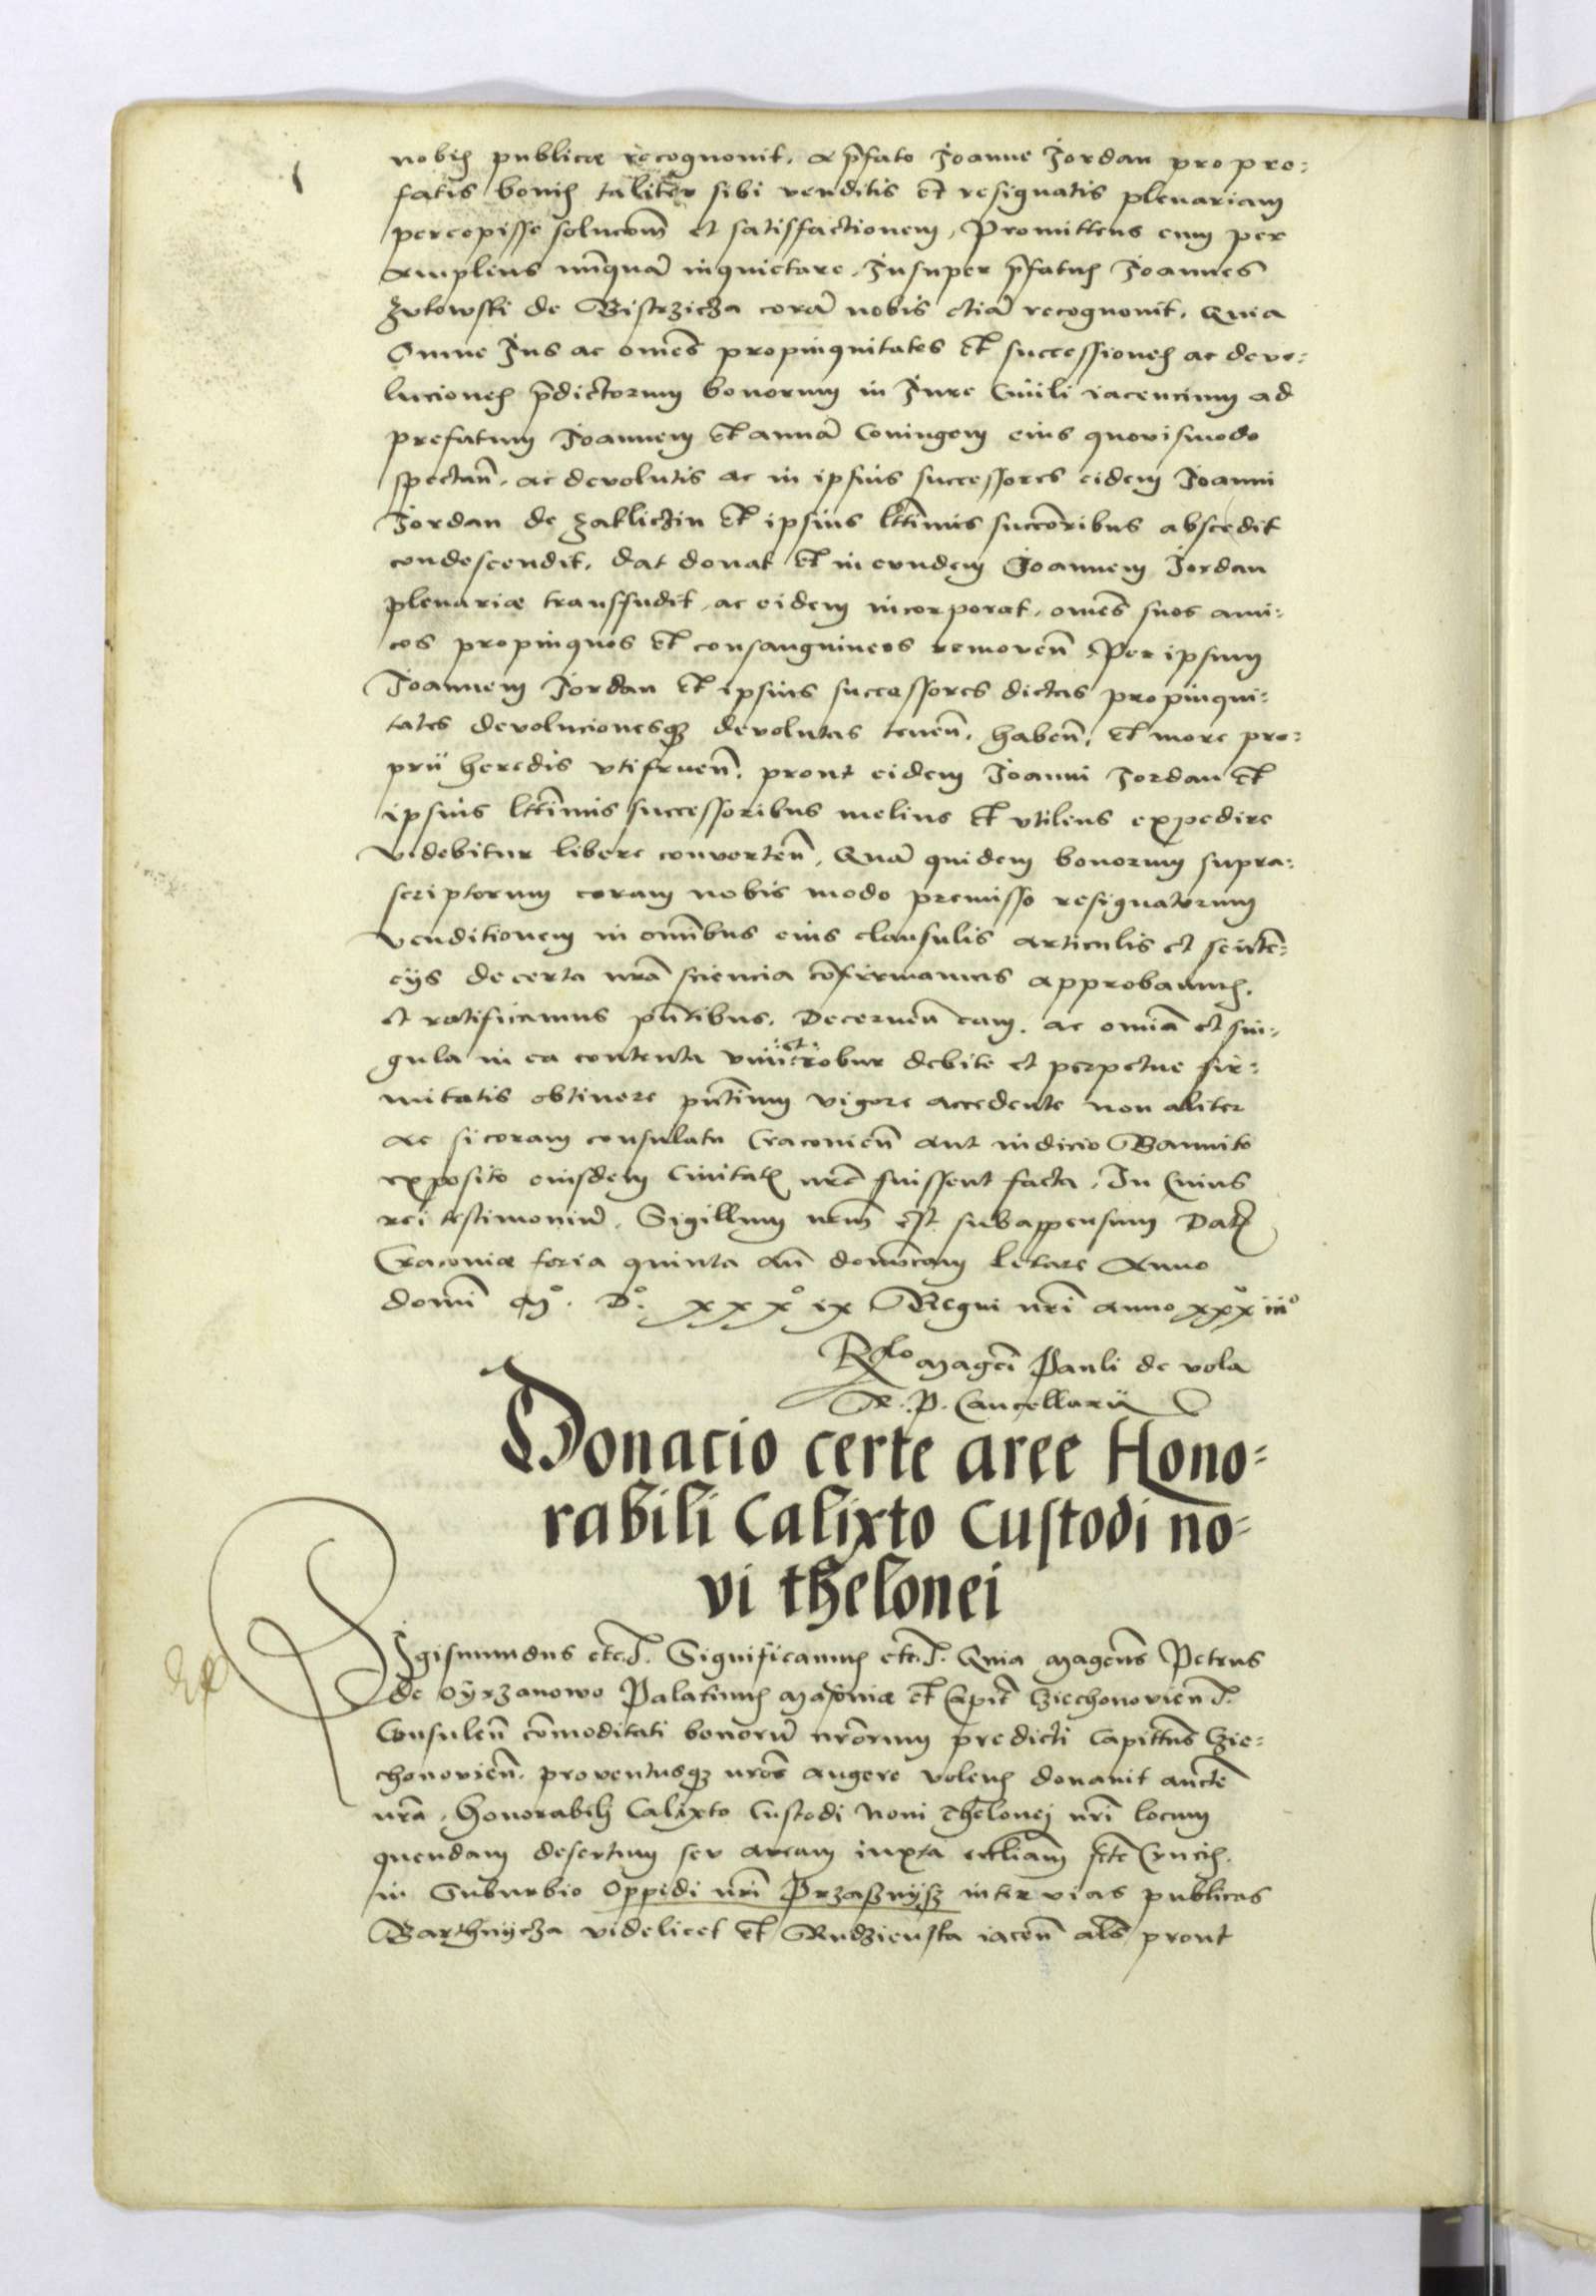 nobis publice recognovit, a p̄fato Joanne Jordan pro pre:
fatis bonis taliter sibi venditis et resignatis plenariam
percepisse soluc̄om̄ et satisfactionem, Promittens eum per
amplius nūnquā inquietare. Insuper p̄fatus Joannes
Zvłowski de Bistrzicza corā nobis etiā recognovit, Quia
Omne Jus ac omēs propinquitates et successiones ac devo:
luciones p̄dictorum bonorum in Jure Civili iacencium ad
prefatum Joannem et annā Coniugem eius quovismodo
spectañ. ac devolutis ac in ipsius successores eidem Joanni
Jordan de Zaklictin et ipsius ltt̄imis succōribus abscedit
condescendit, dat donat et in eundem Joannem Jordan
plenariæ transfudit, ac eidem incorporat, omēs suos ami:
cos propinquos et consanguineos removeñ Per ipsum
Joannem Jordan et ipsius successores dictas propinqui:
tates devolucionesqꝫ devolutas teneñ, habeñ, et more pro:
prii heredis utifrueñ, prout eidem Joanni Jordan et
ipsius ltt̄imis successoribus melius et utilius expedire
Videbitur libere converteñ, Quā quidem bonorum supra:
scriptorum coram nobis modo premisso resignatorum
venditionem in om̄ibus eius clausulis articulis et senten̄:
cijs de certa nr̄a sciencia cōfirmamus approbamus,
et ratificamus pn̄tibus. Decerneñ eam. ac omīa et sin:
gula in ea contenta vim et robur debite et perpetue fir:
mitatis obtinere pn̄tium vigore accedente non aliter
ac si coram consulatu Cracovieñ aut iudicio Bannito
exposito eiusdem Civitatis nr̄e fuissent facta. In Cuius
rei testimoniū, Sigillum nr̄m est subappensum Dat
Cracoviæ feria quinta añ domīcam Letare Anno
domī Mº. Dº. xxxº ix Regni nr̄i anno xxxiiiº
Rlo Magci Pauli de vola
R. P. Cancellarii
Donacio certe aree Hono-
rabili Calixto Custodi no-
vi thelonei
Sigismundus etc. Significamus etc. Quia Magcūs Petrus
de Gyrzanowo Palatinus Masoviæ et Capit̄ Cziechonovieñ.
Consuleñ cōmoditati bonorū nr̄orum predicti Capittūs Czie:
chonovieñ. proventusqꝫ nr̄os augere volens donavit auc̄te
nr̄a, Honorabili Calixto Custodi Novi Thelonei nr̄i locum
quendam desertum seu aream iuxta eccliam sc̄te Crucis,
in Suburbio Oppidi nr̄i Przasznÿsz inter vias publicas
Barthnÿcza videlicet et Rudzienska iaceñ als prout